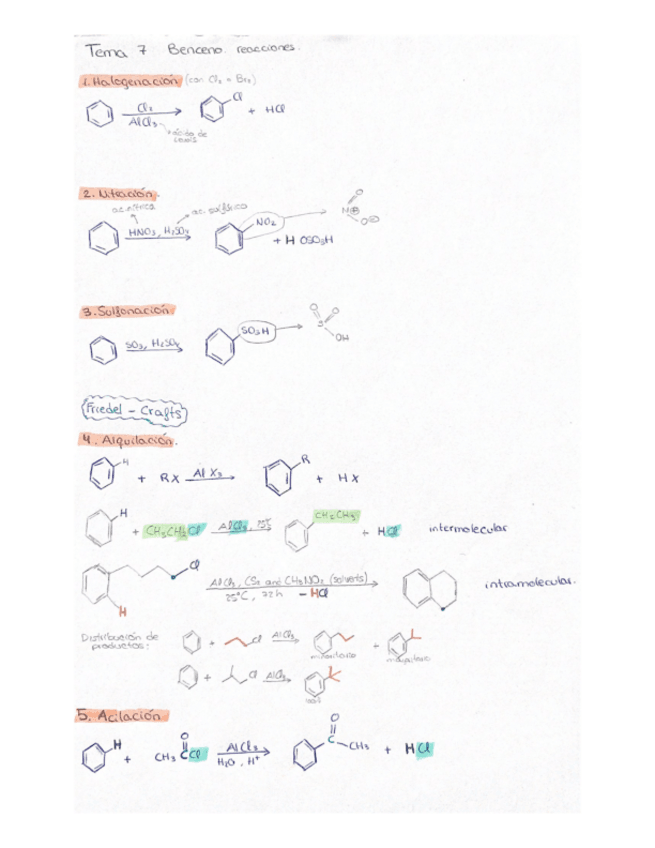 Tema 7 Benceno. reacciones.
1. Halogenación (con Cl₂ = Br₂)
Cl₂
AlCl₃
Cl
+ HCl
ácido de Lewis
2. Nitración.
ac. nítrico
ac. sulfúrico
HNO₃, H₂SO₄
NO₂
+ H OSO₃H
N⊕
O
O⊖
3. Sulfonación
SO₃, H₂SO₄
SO₃H
O O
S
OH
Friedel - Crafts
4. Alquilación.
H
+ RX
AlX₃
R
+ HX
H
+ CH₃CH₂Cl
AlCl₃, 25°C
CH₂CH₃
+ HCl
intermolecular
Cl
H
AlCl₃, CS₂ and CH₃NO₂ (solvents)
25°C, 72h - HCl
intramolecular.
Distribución de productos:
+ Cl AlCl₃
minoritario
+
mayoritario
+ Cl AlCl₃
5. Acilación
H
+
O
CH₃ C Cl
AlCl₃
H₂O, H⁺
O
C CH₃
+ HCl